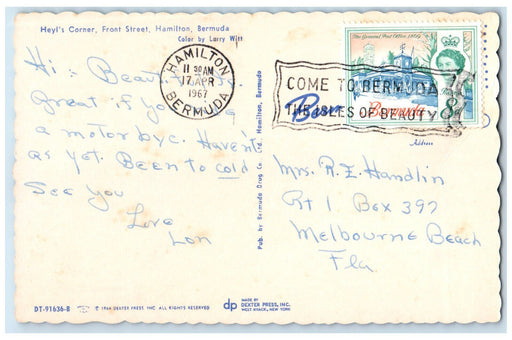 Heyl's Corner, Front Street, Hamilton, Bermuda
Color by Larry Witt
HAMILTON
11 30 AM
17 APR
1967
BERMUDA
COME TO BERMUDA
THE ISLES OF BEAUTY
The General Post Office 1869
Bermuda
8
Hi: Beaut
Great if you
a motorbyc. Haven't
as yet. Been to cold
See you
Love
Lon
Pub. by Bermuda Drug Co. Ltd. Hamilton, Bermuda
Address
Mrs. R. E. Handlin
Rt 1 Box 397
Melbourne Beach
Fla.
DT-91636-B
© 1964 DEXTER PRESS, INC. ALL RIGHTS RESERVED
dp
MADE BY
DEXTER PRESS, INC.
WEST NYACK, NEW YORK